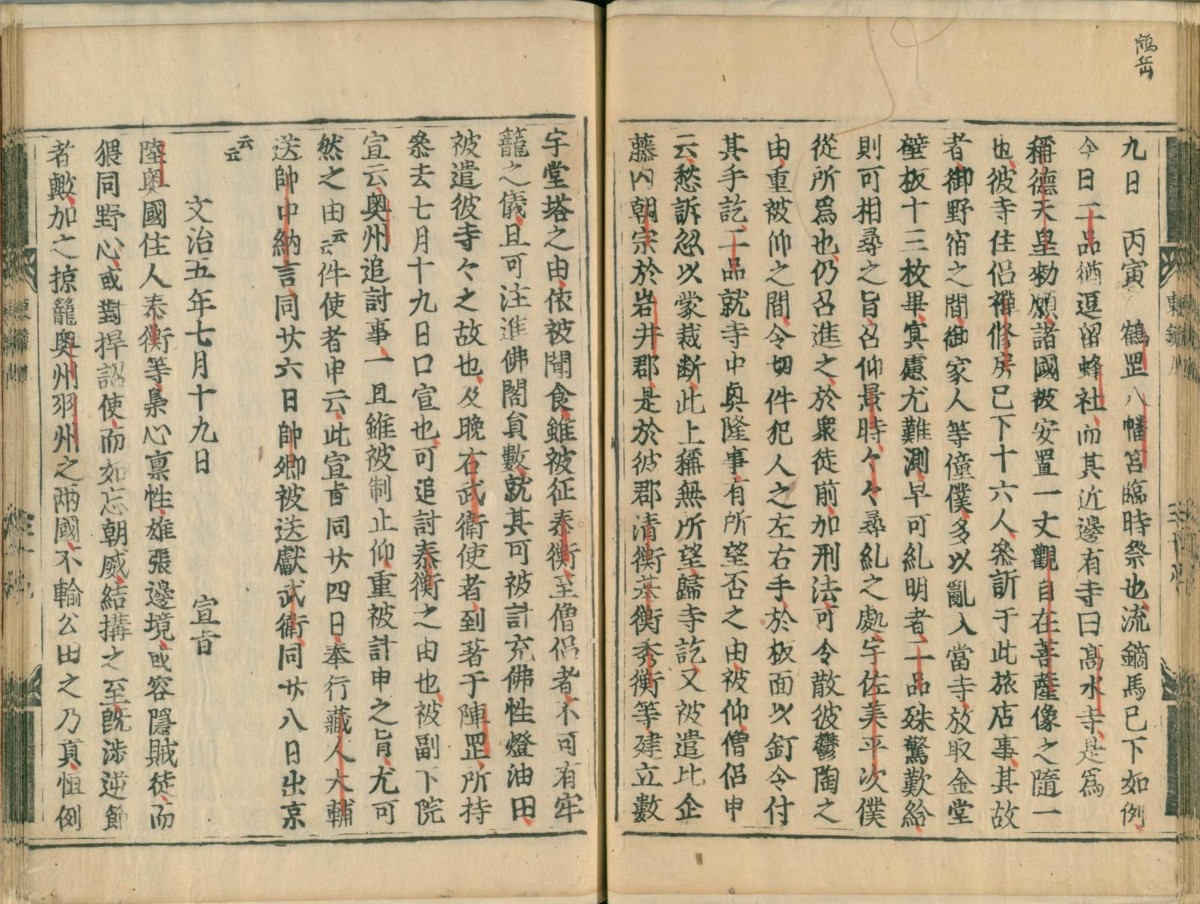 鶴岳
九日 丙寅 鶴岡八幡宮臨時祭也流鏑馬已下如例
今日二品猶逗留蜂社而其近邊有寺曰髙水寺是爲
稱德天皇勑願諸國被安置一丈觀自在菩薩像之隨一
也彼寺住侶禪修房已下十六人叅訴于此旅店事其故
者御野宿之間御家人等僮僕多以亂入當寺放取金堂
壁板十三枚畢冥慮尤難測早可糺明者二品殊驚歎給
則可相尋之旨召仰景時々々尋糺之處宇佐美平次僕
從所爲也仍召進之於衆徒前加刑法可令散彼鬱陶之
由重被仰之間令切件犯人之左右手於板面以釘令付
其手訖二品就寺中興隆事有所望否之由被仰僧侶申
云愁訴忽以蒙裁断此上稱無所望歸寺訖又被遣比企
藤內朝宗於岩井郡是於彼郡清衡基衡秀衡等建立數
宇堂塔之由依被聞食雖被征泰衡至僧侶者不可有牢
籠之儀且可注進佛閣員數就其可被計充佛性燈油田
被遣彼寺々之故也及晚右武衛使者到著于陣罡所持
叅去七月十九日口宣也可追討泰衡之由也被副下院
宣云奥州追討事一旦雖被制止仰重被計申之旨尤可
然之由云云件使者申云此宣旨同廿四日奉行藏人大輔
送帥中納言同廿六日帥卿被送獻武衛同廿八日出京
云云
文治五年七月十九日 宣旨
陸奥國住人泰衡等梟心禀性雄張邊境或容隱賊徒而
猥同野心或對捍詔使而如忘朝威結搆之至旣涉逆節
者歟加之掠籠奥州羽州之兩國不輸公田之乃貢恒例